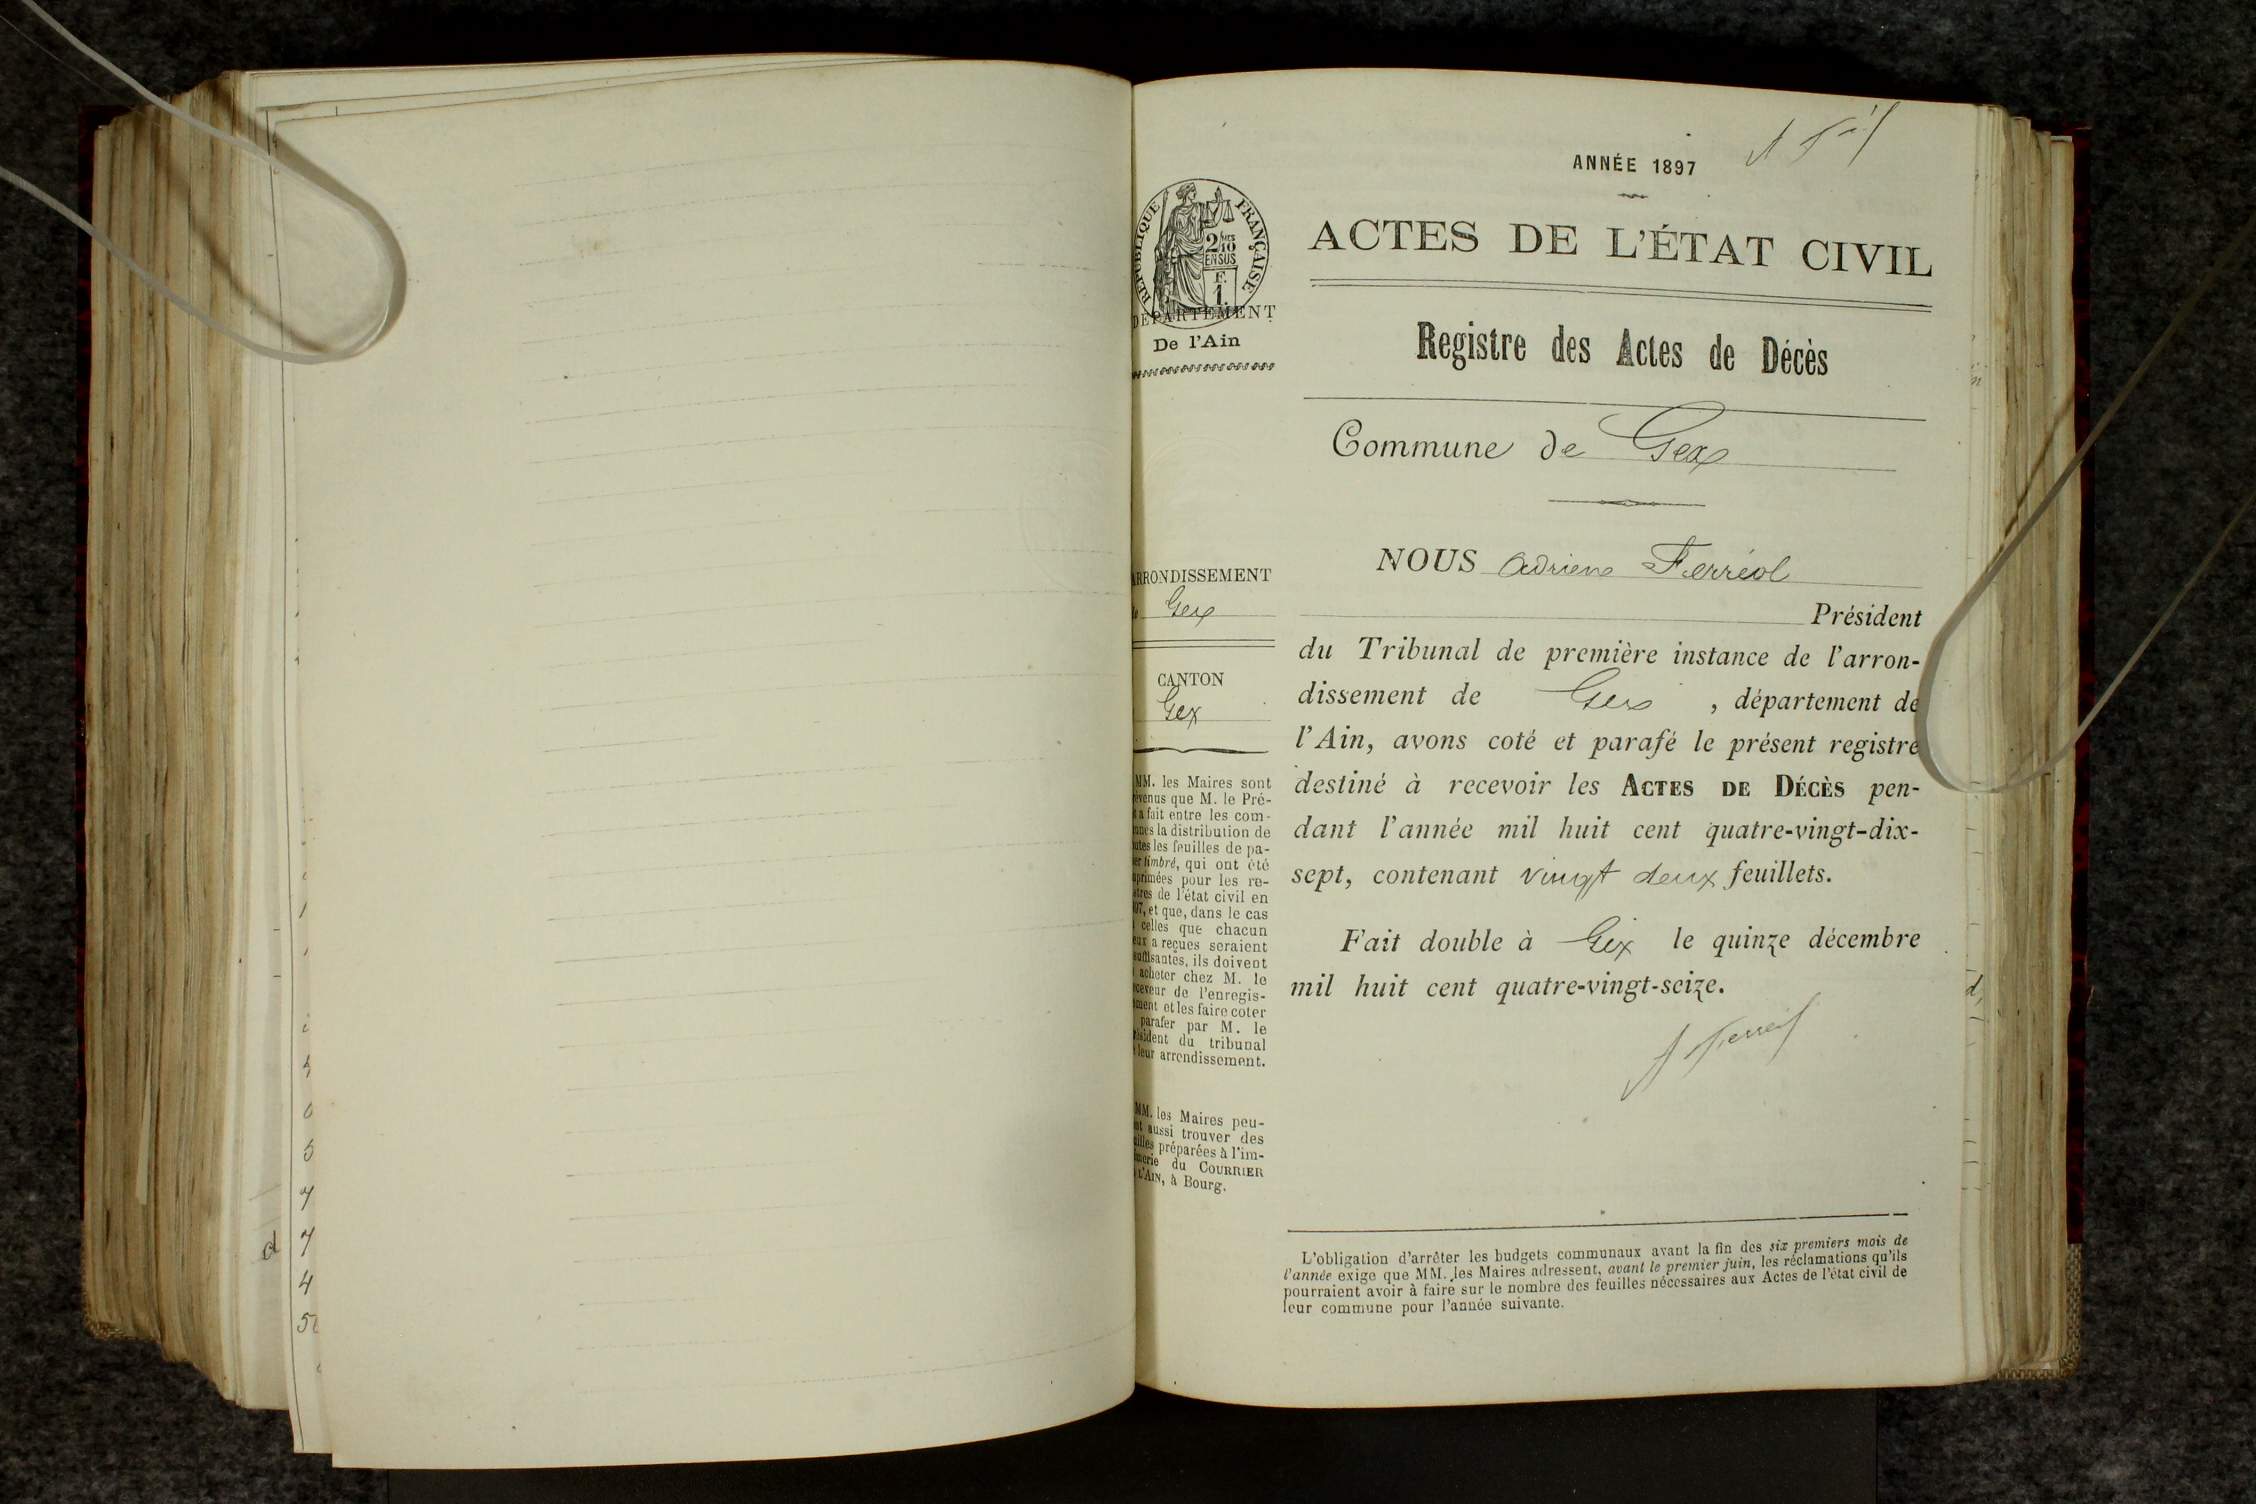 ANNÉE 1897
RÉPUBLIQUE FRANÇAISE
2/10 EN SUS
F.
1.
DÉPARTEMENT
De l'Ain
ACTES DE L'ÉTAT CIVIL
Registre des Actes de Décès
Commune de Gex
NOUS Adrien Ferréol
Président
du Tribunal de première instance de l'arron-
dissement de Gex , département de
l'Ain, avons coté et parafé le présent registre
destiné à recevoir les ACTES DE DÉCÈS pen-
dant l'année mil huit cent quatre-vingt-dix-
sept, contenant vingt deux feuillets.
Fait double à Gex le quinze décembre
mil huit cent quatre-vingt-seize.
ARRONDISSEMENT
Gex
CANTON
Gex
MM. les Maires sont
que M. le Pré-
a fait entre les com-
la distribution de
les feuilles de pa-
timbré, qui ont été
pour les re-
de l'état civil en
et que, dans le cas
celles que chacun
a reçues seraient
ils doivent
acheter chez M. le
de l'enregis-
et les faire coter
parafer par M. le
du tribunal
leur arrondissement.
MM. les Maires peu-
aussi trouver des
préparées à l'im-
du COURRIER
L'AIN, à Bourg.
L'obligation d'arrêter les budgets communaux avant la fin des six premiers mois de
l'année exige que MM. les Maires adressent, avant le premier juin, les réclamations qu'ils
pourraient avoir à faire sur le nombre des feuilles nécessaires aux Actes de l'état civil de
leur commune pour l'année suivante.